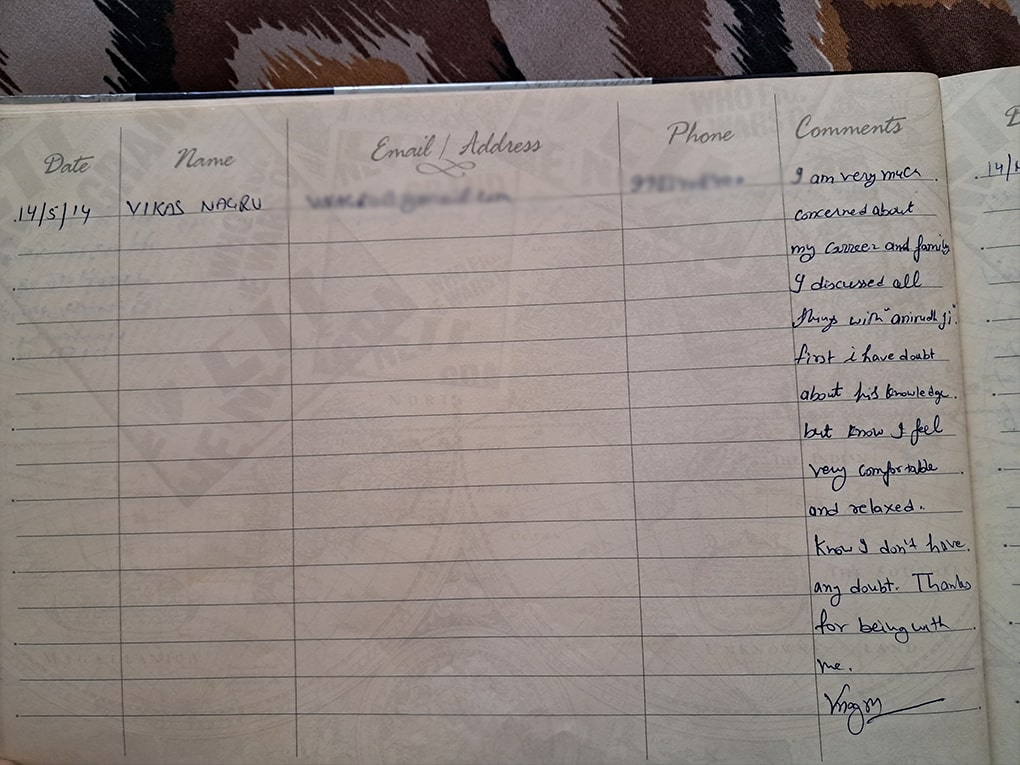 Date Name Email / Address Phone Comments
14/5/14 VIKAS NAGRU
I am very much
concerned about
my carreer and family
I discussed all
things with "anirudh ji".
first i have doubt
about his knowledge.
but know I feel
very comfortable
and relaxed.
Know I don't have
any doubt. Thanks
for being with
me.